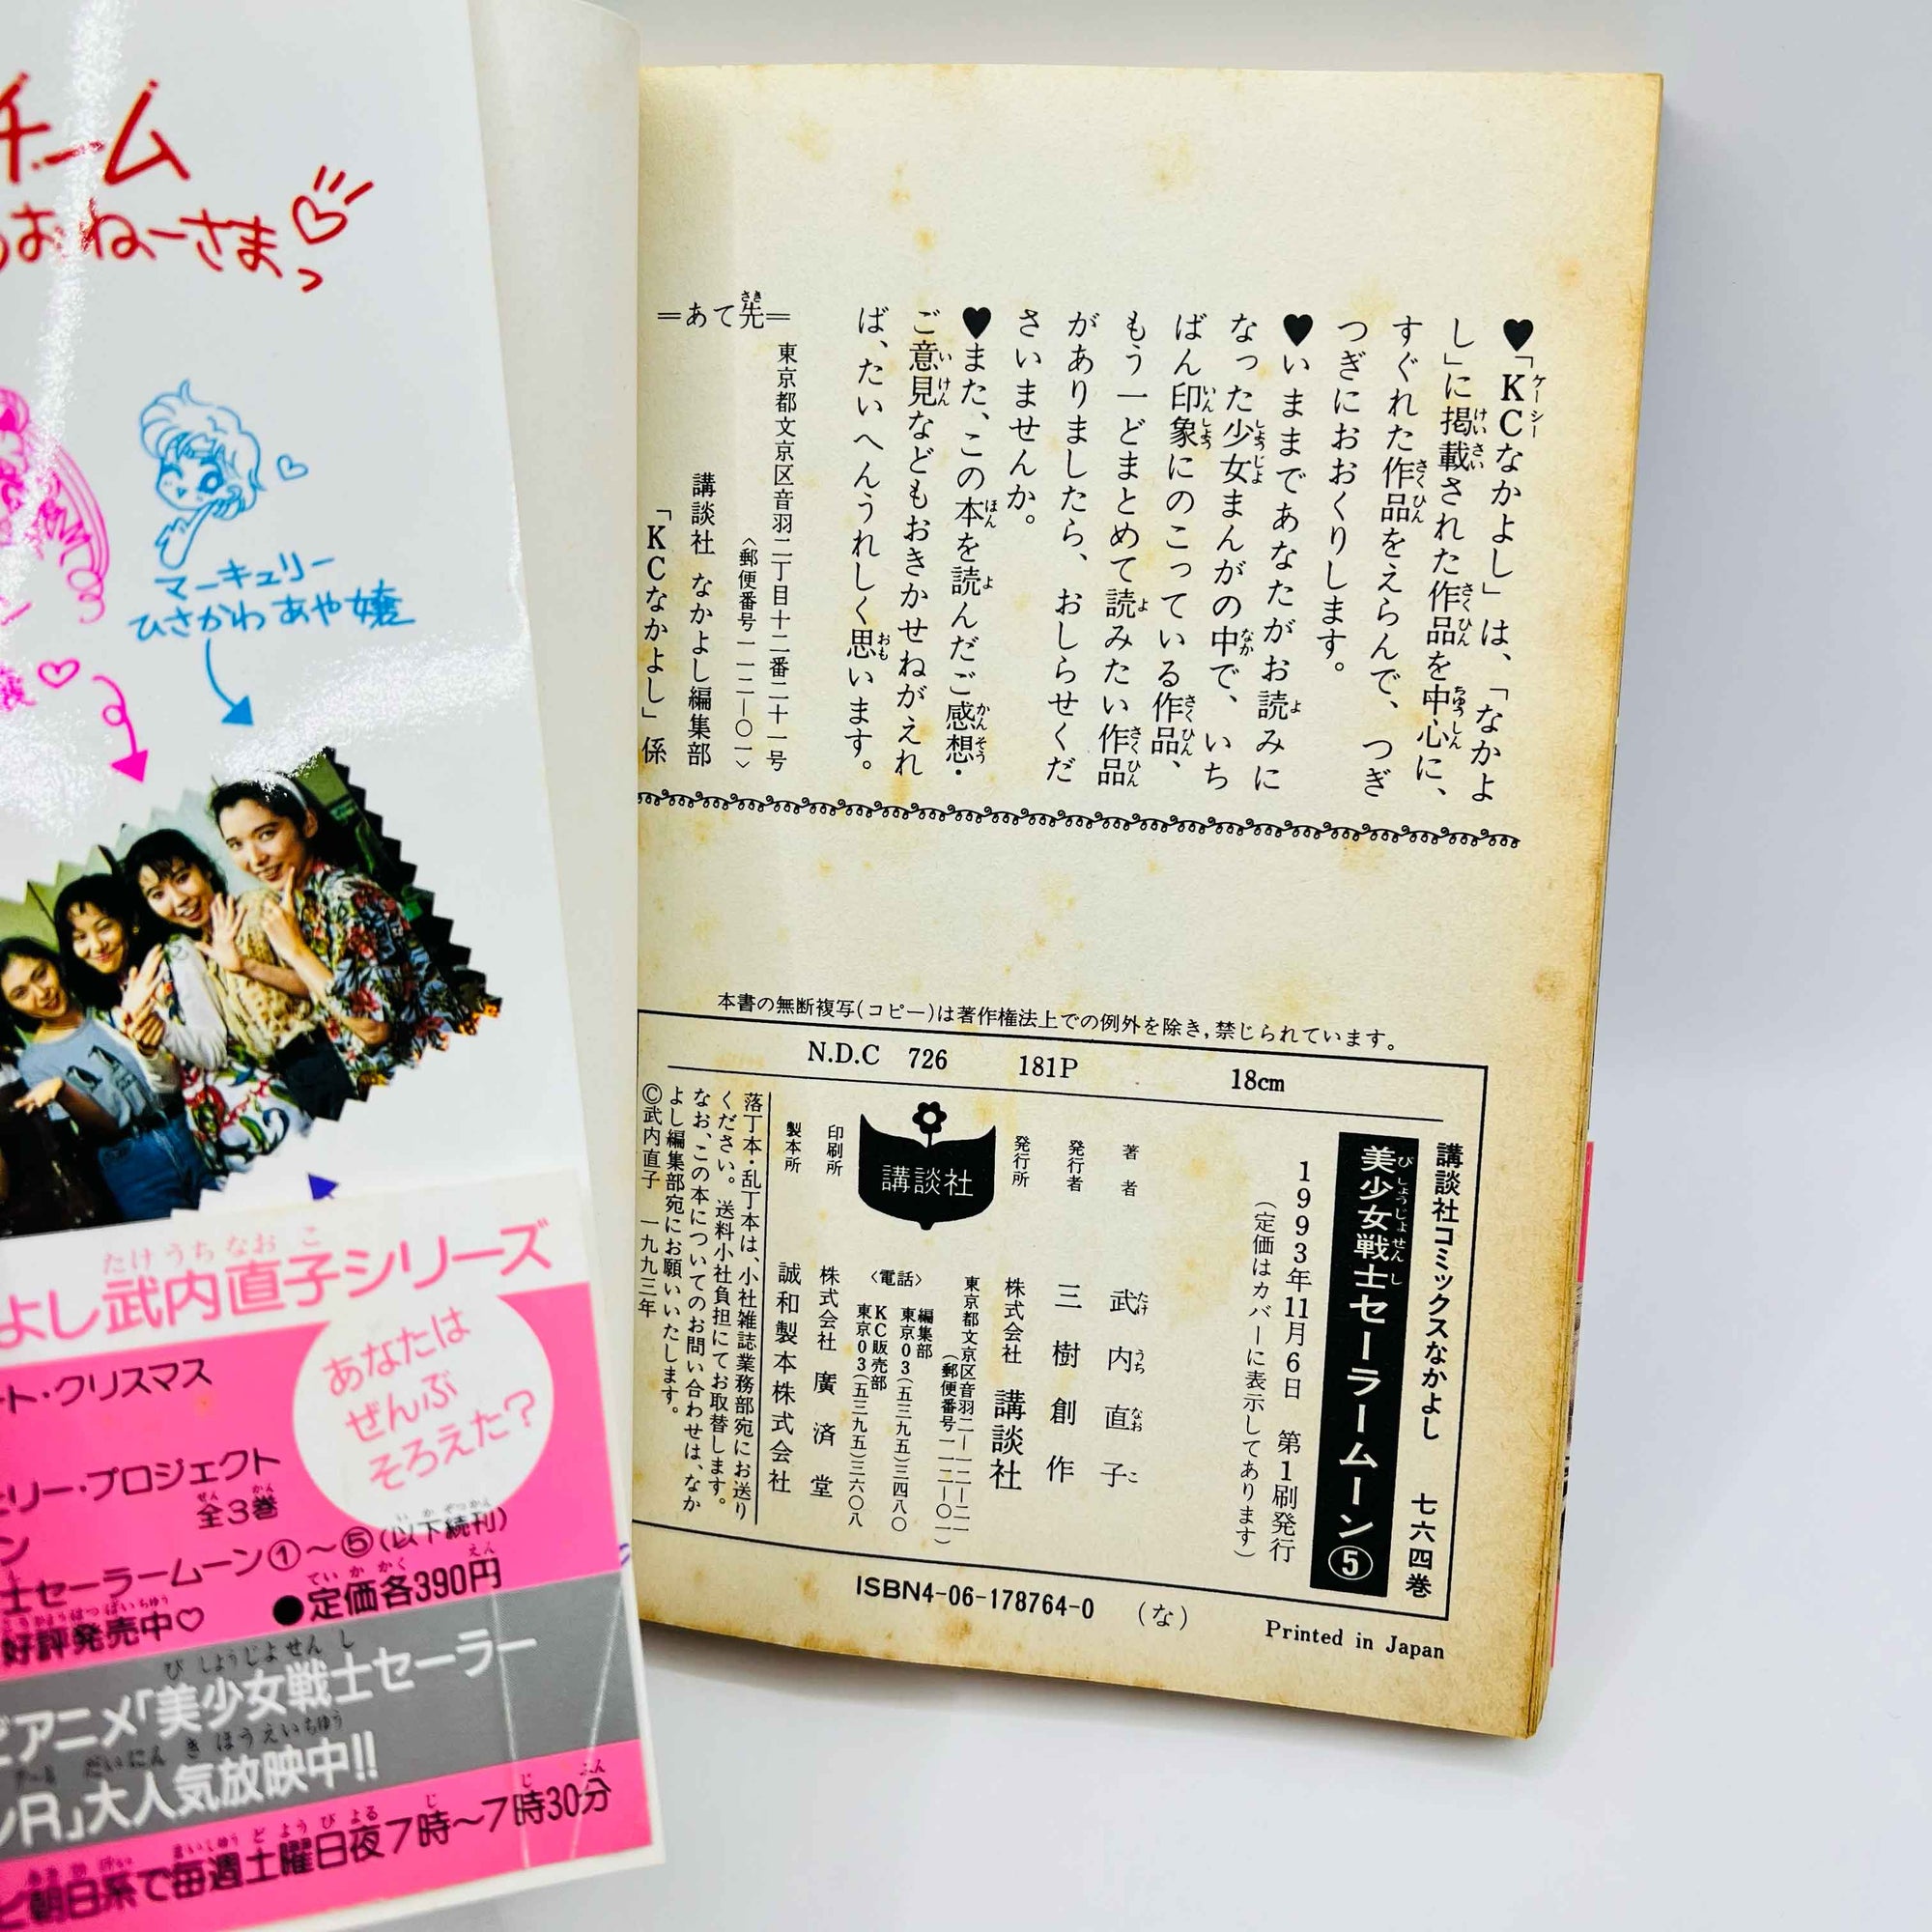 チーム
おねーさまっ
マーキュリー
ひさかわ あや嬢
たけうちなおこ
よし武内直子シリーズ
あなたは
ぜんぶ
そろえた?
ート・クリスマス
リー・プロジェクト
ぜんかん
全3巻
ン
いかぞっかん
士セーラームーン①〜⑤(以下続刊)
ていかかくえん
●定価各390円
こうひょうはつばいちゅう
好評発売中♡
びしょうじょせんし
アニメ「美少女戦士セーラー
アールだいにんきほうえいちゅう
ンR」大人気放映中!!
まいしゅうどようびよるじぷん
朝日系で毎週土曜日夜7時〜7時30分
♥「KCなかよし」は、「なかよ
し」に掲載された作品を中心に、
すぐれた作品をえらんで、つぎ
つぎにおおくりします。
♥いままであなたがお読みに
なった少女まんがの中で、いち
ばん印象にのこっている作品、
もう一どまとめて読みたい作品
がありましたら、おしらせくだ
さいませんか。
♥また、この本を読んだご感想・
ご意見などもおきかせねがえれ
ば、たいへんうれしく思います。
=あて先=
東京都文京区音羽二丁目十二番二十一号
〈郵便番号一一二―〇一〉
講談社 なかよし編集部
「KCなかよし」係
本書の無断複写(コピー)は著作権法上での例外を除き,禁じられています。
N.D.C 726 181P 18cm
講談社コミックスなかよし 七六四巻
美少女戦士セーラームーン⑤
1993年11月6日 第1刷発行
(定価はカバーに表示してあります)
著者 武内直子
発行者 三樹創作
発行所 株式会社 講談社
東京都文京区音羽二―一二―二一
(郵便番号一一二―〇一)
〈電話〉 編集部
東京03(五三九五)三四八〇
KC販売部
東京03(五三九五)三六〇八
講談社
印刷所 株式会社 廣済堂
製本所 誠和製本株式会社
落丁本・乱丁本は、小社雑誌業務部宛にお送り
ください。送料小社負担にてお取替します。
なお、この本についてのお問い合わせは、なか
よし編集部宛にお願いいたします。
©武内直子 一九九三年
ISBN4-06-178764-0 (な)
Printed in Japan